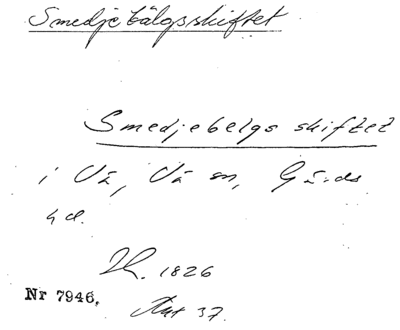 Smedjebälgsskiftet
Smedjebelgs skiftet
i Vä, Vä sn, Gärds
hd.
1826
Nr 7946.
Akt 37.